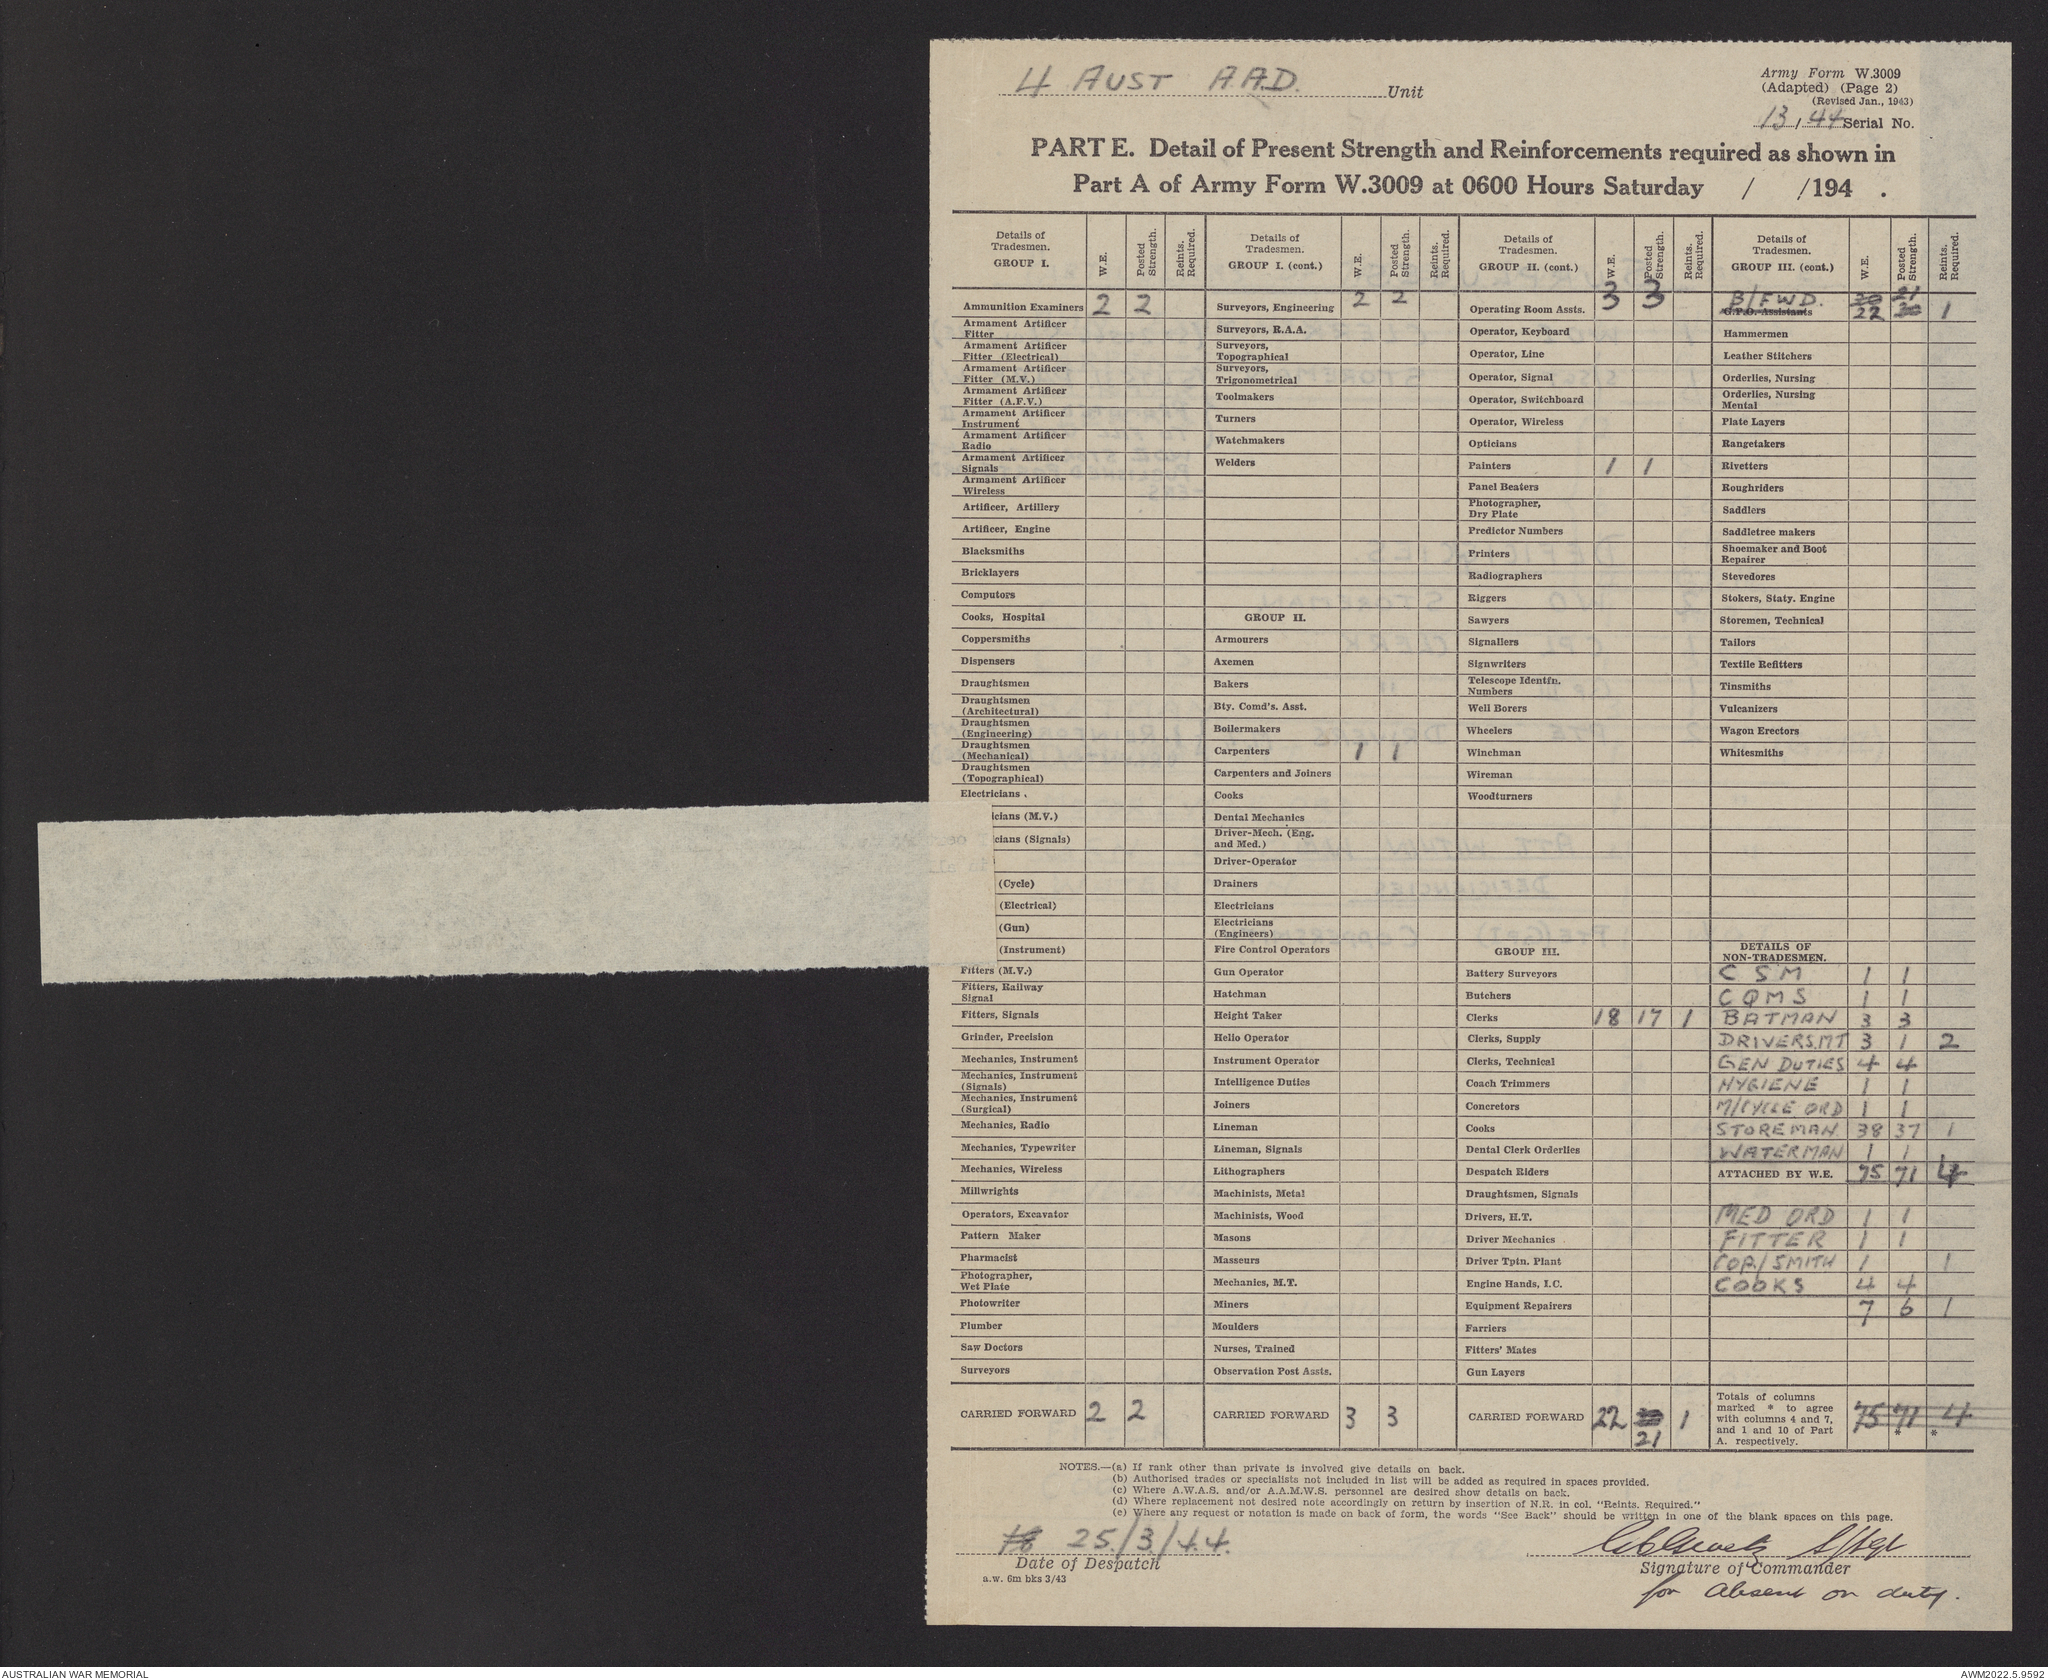 4 AUST A.A.D. Unit
Army Form W.3009
(Adapted) (Page 2)
(Revised Jan., 1943)
13/44 Serial No.
PART E. Detail of Present Strength and Reinforcements required as shown in
Part A of Army Form W.3009 at 0600 Hours Saturday / /194 .
Details of Tradesmen. GROUP I. W.E. Posted Strength. Reints. Required.
Ammunition Examiners 2 2
Armament Artificer Fitter
Armament Artificer Fitter (Electrical)
Armament Artificer Fitter (M.V.)
Armament Artificer Fitter (A.F.V.)
Armament Artificer Instrument
Armament Artificer Radio
Armament Artificer Signals
Armament Artificer Wireless
Artificer, Artillery
Artificer, Engine
Blacksmiths
Bricklayers
Computors
Cooks, Hospital
Coppersmiths
Dispensers
Draughtsmen
Draughtsmen (Architectural)
Draughtsmen (Engineering)
Draughtsmen (Mechanical)
Draughtsmen (Topographical)
Electricians .
icians (M.V.)
cians (Signals)
(Cycle)
(Electrical)
(Gun)
(Instrument)
Fitters (M.V.)
Fitters, Railway Signal
Fitters, Signals
Grinder, Precision
Mechanics, Instrument
Mechanics, Instrument (Signals)
Mechanics, Instrument (Surgical)
Mechanics, Radio
Mechanics, Typewriter
Mechanics, Wireless
Millwrights
Operators, Excavator
Pattern Maker
Pharmacist
Photographer, Wet Plate
Photowriter
Plumber
Saw Doctors
Surveyors
CARRIED FORWARD 2 2
Details of Tradesmen. GROUP I. (cont.) W.E. Posted Strength. Reints. Required.
Surveyors, Engineering 2 2
Surveyors, R.A.A.
Surveyors, Topographical
Surveyors, Trigonometrical
Toolmakers
Turners
Watchmakers
Welders
GROUP II.
Armourers
Axemen
Bakers
Bty. Comd's. Asst.
Boilermakers
Carpenters 1 1
Carpenters and Joiners
Cooks
Dental Mechanics
Driver-Mech. (Eng. and Med.)
Driver-Operator
Drainers
Electricians
Electricians (Engineers)
Fire Control Operators
Gun Operator
Hatchman
Height Taker
Helio Operator
Instrument Operator
Intelligence Duties
Joiners
Lineman
Lineman, Signals
Lithographers
Machinists, Metal
Machinists, Wood
Masons
Masseurs
Mechanics, M.T.
Miners
Moulders
Nurses, Trained
Observation Post Assts.
CARRIED FORWARD 3 3
Details of Tradesmen. GROUP II. (cont.) W.E. Posted Strength. Reints. Required.
3 3
Operating Room Assts. 3 3
Operator, Keyboard
Operator, Line
Operator, Signal
Operator, Switchboard
Operator, Wireless
Opticians
Painters 1 1
Panel Beaters
Photographer, Dry Plate
Predictor Numbers
Printers
Radiographers
Riggers
Sawyers
Signallers
Signwriters
Telescope Identfn. Numbers
Well Borers
Wheelers
Winchman
Wireman
Woodturners
GROUP III.
Battery Surveyors
Butchers
Clerks 18 17 1
Clerks, Supply
Clerks, Technical
Coach Trimmers
Concretors
Cooks
Dental Clerk Orderlies
Despatch Riders
Draughtsmen, Signals
Drivers, H.T.
Driver Mechanics
Driver Tptn. Plant
Engine Hands, I.C.
Equipment Repairers
Farriers
Fitters' Mates
Gun Layers
CARRIED FORWARD 22 21 1
Details of Tradesmen. GROUP III. (cont.) W.E. Posted Strength. Reints. Required.
B/FWD. 20 21
G.P.O. Assistants 22 20 1
Hammermen
Leather Stitchers
Orderlies, Nursing
Orderlies, Nursing Mental
Plate Layers
Rangetakers
Rivetters
Roughriders
Saddlers
Saddletree makers
Shoemaker and Boot Repairer
Stevedores
Stokers, Staty. Engine
Storemen, Technical
Tailors
Textile Refitters
Tinsmiths
Vulcanizers
Wagon Erectors
Whitesmiths
DETAILS OF NON-TRADESMEN.
C S M 1 1
C Q M S 1 1
BATMAN 3 3
DRIVERS.MT 3 1 2
GEN DUTIES 4 4
HYGIENE 1 1
M/CYCLE ORD 1 1
STOREMAN. 38 37 1
WATERMAN 1 1
ATTACHED BY W.E. 75 71 4
MED ORD 1 1
FITTER 1 1
COP/SMITH 1 1
COOKS 4 4
7 6 1
Totals of columns marked * to agree with columns 4 and 7, and 1 and 10 of Part A. respectively. 75 71 * 4 *
NOTES.—(a) If rank other than private is involved give details on back.
(b) Authorised trades or specialists not included in list will be added as required in spaces provided.
(c) Where A.W.A.S. and/or A.A.M.W.S. personnel are desired show details on back.
(d) Where replacement not desired note accordingly on return by insertion of N.R. in col. "Reints. Required."
(e) Where any request or notation is made on back of form, the words "See Back" should be written in one of the blank spaces on this page.
25/3/44.
Date of Despatch
a.w. 6m bks 3/43
S/Sgt
Signature of Commander
for absent on duty.
AUSTRALIAN WAR MEMORIAL
AWM2022.5.9592